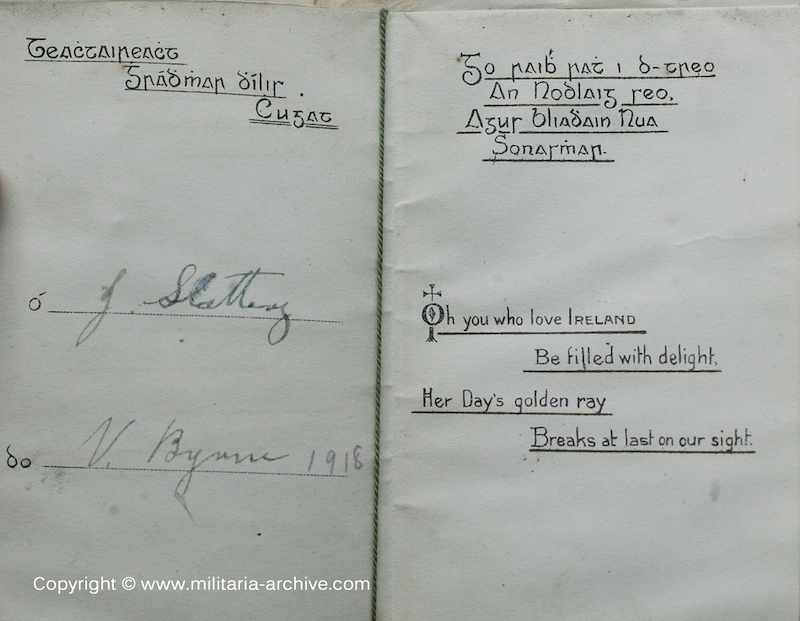 Teaċtaireaċt
Gráḋṁar ḋílir.
Ċugat
ó J. Slattery
do V. Byrne 1918
Go raiḃ raṫ i d-treo
An Nodlaig seo.
Agus bliaḋain Nua
Sonasṁar.
Oh you who love IRELAND
Be filled with delight,
Her Day's golden ray
Breaks at last on our sight.
Copyright © www.militaria-archive.com